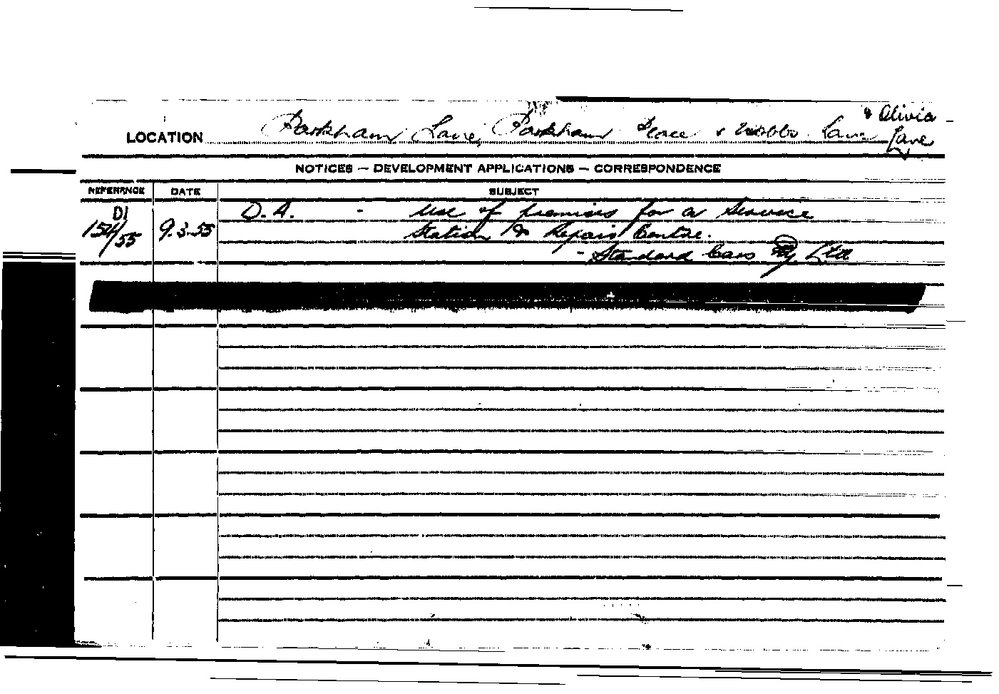 & Olivia
LOCATION Parkham Lane, Parkham Place & Lane Lane
NOTICES — DEVELOPMENT APPLICATIONS — CORRESPONDENCE
REFERENCE DATE SUBJECT
D1 D.A. - Use of premises for a Service
154/55 9.3.55 Station & Repair Centre.
- Standard Cars Pty Ltd